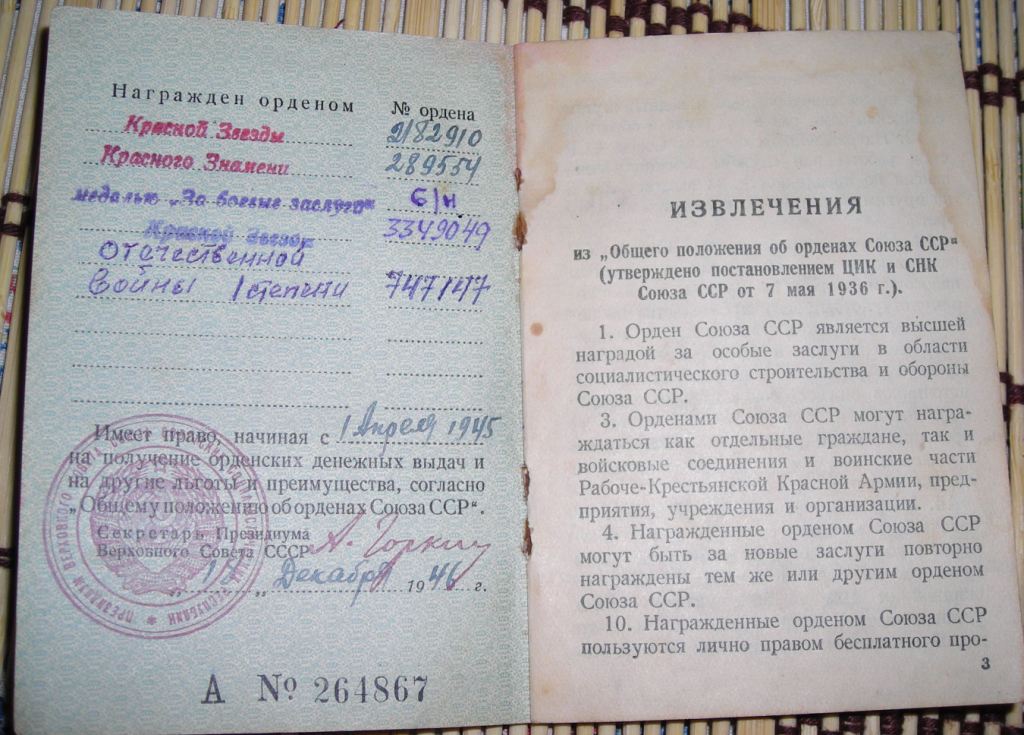 Награжден орденом № ордена
Красной Звезды 2182910
Красного Знамени 289554
медалью „За боевые заслуги" б/н
Красной Звезды 3349049
Отечественной
Войны I степени 747147
Имеет право, начиная с 1 Апреля 1945
на получение орденских денежных выдач и
на другие льготы и преимущества, согласно
„Общему положению об орденах Союза ССР".
Секретарь Президиума
Верховного Совета СССР А. Горкин
„ Декабря 1946 г.
А № 264867
ИЗВЛЕЧЕНИЯ
из „Общего положения об орденах Союза ССР"
(утверждено постановлением ЦИК и СНК
Союза ССР от 7 мая 1936 г.).
1. Орден Союза ССР является высшей
наградой за особые заслуги в области
социалистического строительства и обороны
Союза ССР.
3. Орденами Союза ССР могут награ-
ждаться как отдельные граждане, так и
войсковые соединения и воинские части
Рабоче-Крестьянской Красной Армии, пред-
приятия, учреждения и организации.
4. Награжденные орденом Союза ССР
могут быть за новые заслуги повторно
награждены тем же или другим орденом
Союза ССР.
10. Награжденные орденом Союза ССР
пользуются лично правом бесплатного про-
3